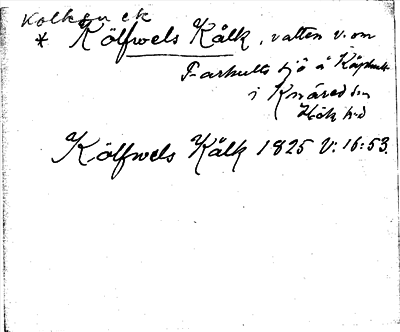 Kolkhuck
* Kölfwels Kålk, vatten v. om
Farhults sjö å Kåphult
i Knäred sn
Hök hd
Kölfwels Kälk 1825 V: 16:53.